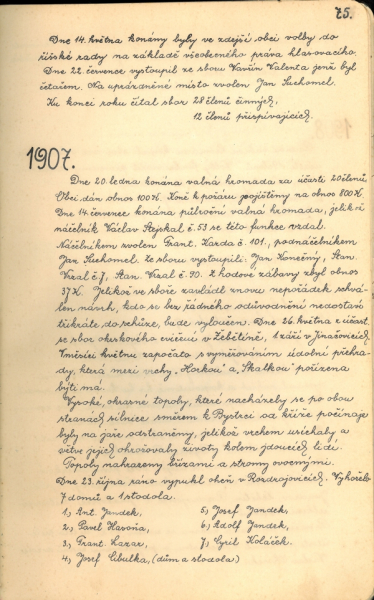 75.
Dne 14. května konány byly ve zdejší obci volby do
říšské rady na základě všeobecného práva hlasovacího.
Dne 22. července vystoupil ze sboru Vavřín Valenta jenž byl
četařem. Na uprázdněné místo zvolen Jan Suchomel.
Ku konci roku čítal sbor 28 členů činných,
12 členů přispívajících.
1907.
Dne 20. ledna konána valná hromada za účasti 20 členů
Obcí dán obnos 100 K. Koně k požáru pojištěny na obnos 800 K
Dne 14. července konána půlroční valná hromada, jelikož
náčelník Václav Stejskal č. 53 se této funkce vzdal.
Náčelníkem zvolen Frant. Karda č. 101., podnáčelníkem
Jan Suchomel. Ze sboru vystoupili: Jan Konečný, Stan.
Vrzal č. 7, Stan. Vrzal č. 90. Z hodové zábavy zbyl obnos
37 K. Jelikož ve sboře zavládl znovu nepořádek schvá-
len návrh, kdo se bez řádného odůvodnění nedostaví
třikráte do schůze, bude vyloučen. Dne 26. května účast.
se sbor okrskového cvičení v Žebětíně, 1 září v Jinačovicích
V měsíci květnu započato s vyměřováním údolní přehra-
dy, která mezi vrchy „Horkou" a „Skalkou" pořízena
býti má.
Vysoké, okrasné topoly, které nacházely se po obou
stranách silnice směrem k Bystrci od kříže počínaje
byly na jaře odstraněny, jelikož vrchem usýchaly a
větve jejich ohrožovaly životy kolem jdoucích lidí.
Topoly nahrazeny břízami a stromy ovocnými.
Dne 23. října ráno vypukl oheň v Rozdrojovicích. Vyhořelo
7 domů a 1 stodola.
1, Ant. Jandek,
2, Pavel Havoňa,
3, Frant. Lazar,
4, Josef Cibulka, (dům a stodola)
5, Josef Jandek,
6, Adolf Jandek,
7, Cyril Koláček.